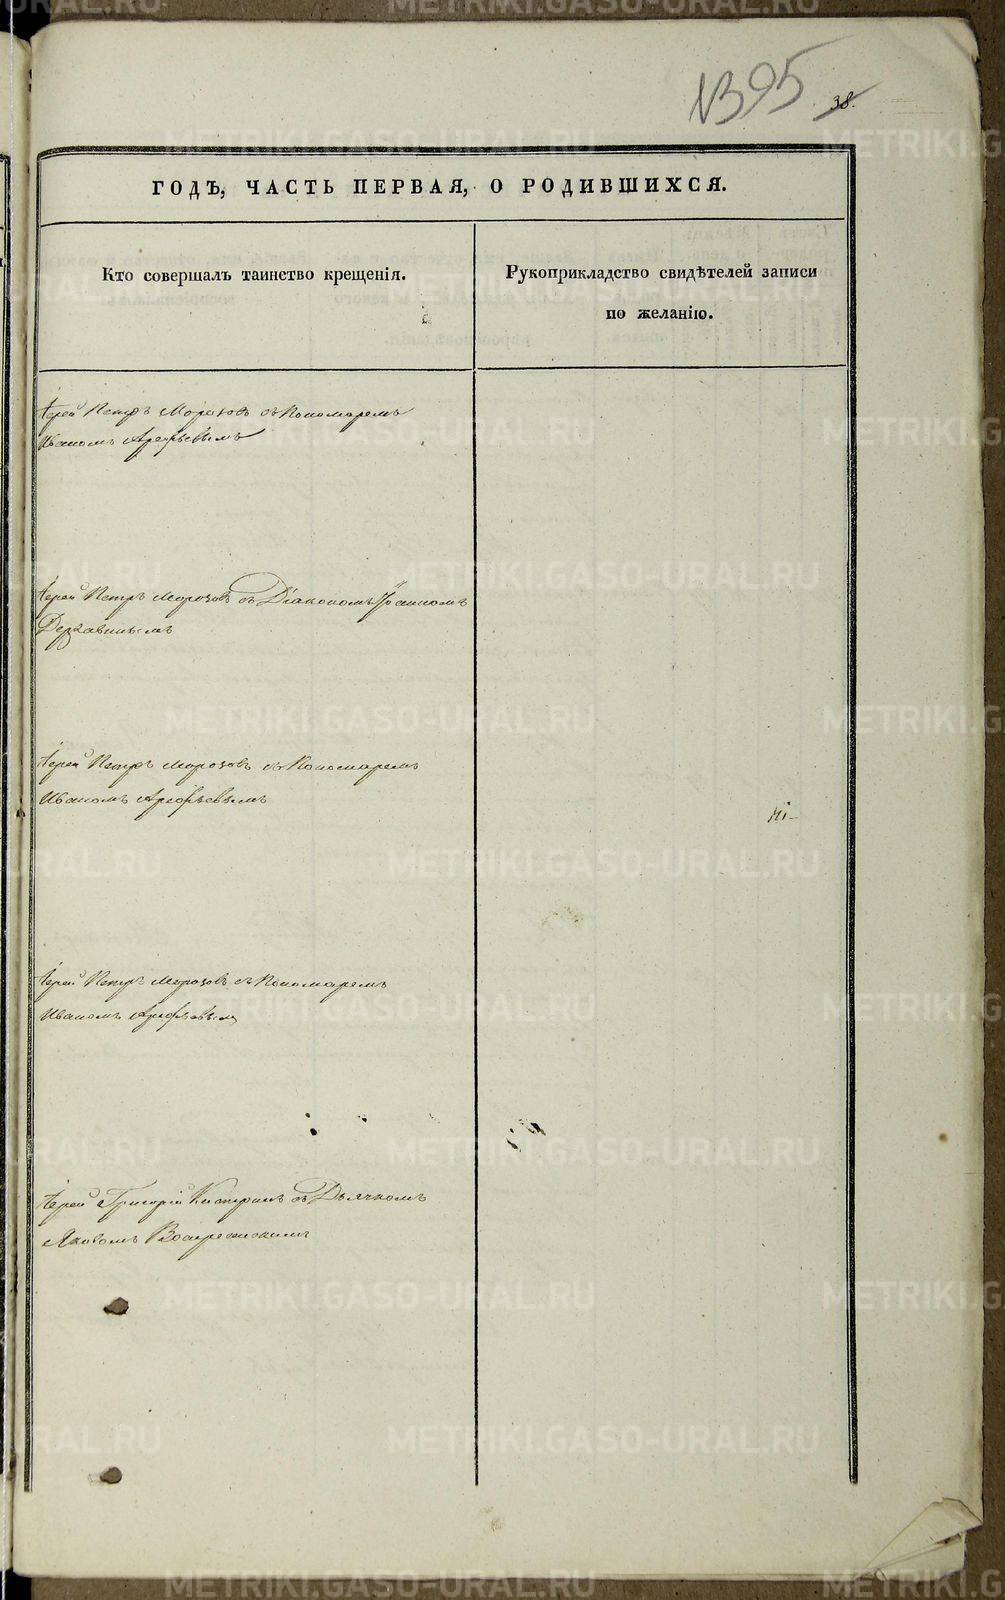 1395
38.
ГОДЪ, ЧАСТЬ ПЕРВАЯ, О РОДИВШИХСЯ.
Кто совершалъ таинство крещенія.
Рукоприкладство свидѣтелей записи
по желанію.
Іерей Петръ Морозовъ съ Пономаремъ
Иваномъ Арефьевымъ
Іерей Петръ Морозовъ съ Діакономъ Іоанномъ
Державинымъ
Іерей Петръ Морозовъ съ Пономаремъ
Иваномъ Арефьевымъ
Іерей Петръ Морозовъ съ Пономаремъ
Иваномъ Арефьевым
Іерей Григорій съ Дьячкомъ
Яковомъ Воскресенскимъ
METRIKI.GASO-URAL.RU